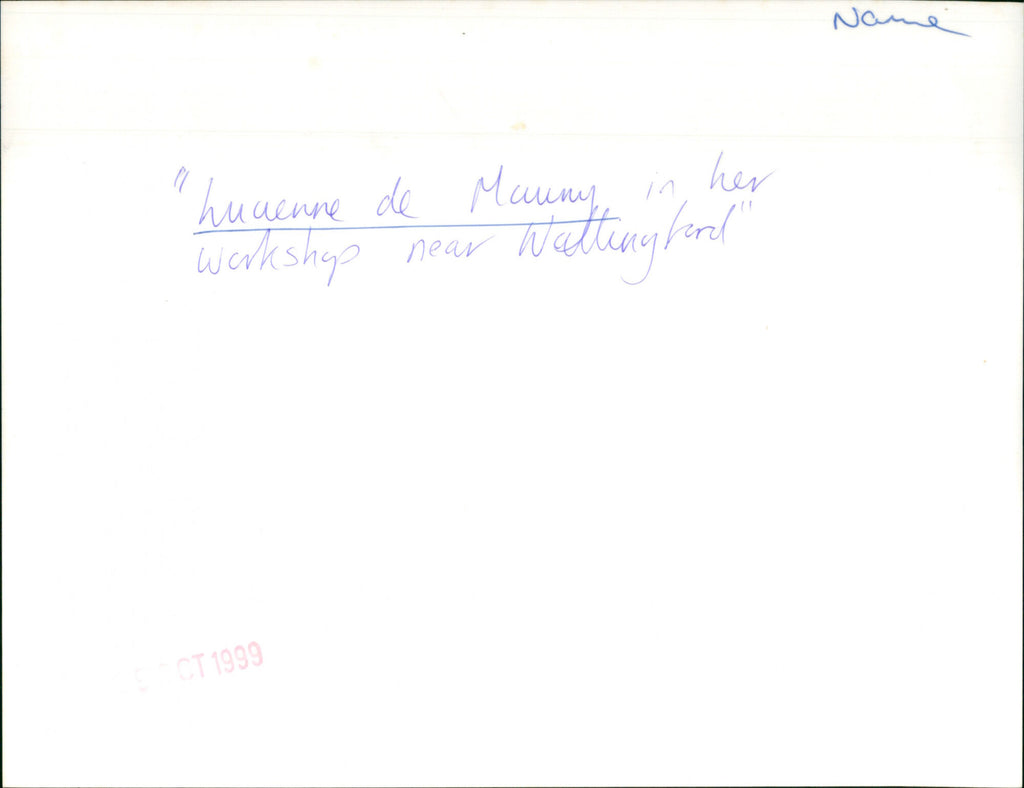 Name
"Lucienne de Mauny in her
workshop near Wallingford"
CT 1999